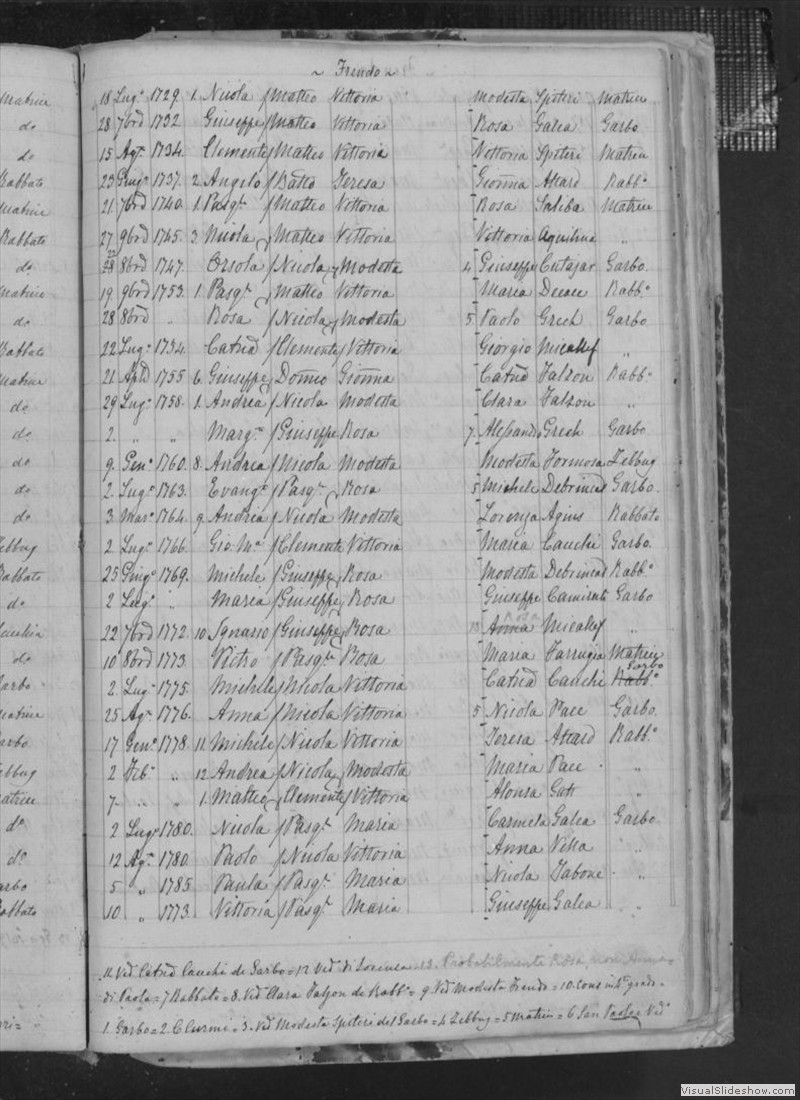 ~ Frendo ~
18 Lug.º 1729. 1. Nicola / Matteo Vittoria Modesta Spiteri Matrice
28 7brd 1732 Giuseppe / Matteo Vittoria Rosa Galea Garbo
15 Agt. 1734. Clemente / Matteo Vittoria Vittoria Spiteri Matrice
23 Giugº 1737. 2. Angelo / Batto Teresa Gionna Attard Rabbº
21 7brd 1740. 1. Pasqle / Matteo Vittoria Rosa Saliba Matrice
27 9brd 1745. 3. Nicola / Matteo Vittoria Vittoria Aquilina "
28 8brd 1747. Orsola / Nicola Modesta 4 Giuseppe Cutajar Garbo.
19 9brd 1753. 1. Pasqle / Matteo Vittoria Maria Rabbº
28 8brd " Rosa / Nicola Modesta 5 Paolo Grech Garbo
22 Lug.º 1754. Catrd / Clemente / Vittoria Giorgio Micallef "
21 Aple 1755 6. Giuseppe / Domco Gionna Catrd Falzon Rabbº
29 Lug.º 1758. 1. Andrea / Nicola Modesta Clara Falzon "
2. " " Marg.ta / Giuseppe Rosa 7. Alessandro Grech Garbo
9. Genº 1760. 8. Andrea / Nicola Modesta Modesta Formosa Zebbug
2. Lugº 1763. Evangta / Pasqle Rosa 5 Michele Debrincat Garbo.
3 Marº 1764. 9. Andrea / Nicola Modesta Lorenza Agius Rabbato
2. Lugº 1766. Gio. Ma / Clemente Vittoria Maria Cauchi Garbo.
25 Giugº 1769. Michele / Giuseppe Rosa Modesta Debrincat Rabbº
2 Lugº " Maria / Giuseppe Rosa Giuseppe Camenti Garbo
22 7brd 1772. 10 Ignazio / Giuseppe Rosa 13 Rosa Anna Micallef "
10 8brd 1773. Pietro / Pasqle Rosa Maria Farrugia Matrice
2. Lugº 1775. Michele / Nicola Vittoria Catrd Cauchi Garbo Rabbº
25 Agº 1776. Anna / Nicola Vittoria 5 Nicola Pace Garbo.
17 Genº 1778. 11. Michele / Nicola Vittoria Teresa Attard Rabbº
2 Feb. " 12 Andrea / Nicola Modesta Maria Pace "
7. " " 1. Matteo / Clemente / Vittoria Gatt "
2 Lugº 1780. Nicola / Pasqle Maria Carmela Galea Garbo
12 Agº 1780. Paolo / Nicola Vittoria Anna Vella "
5 " 1785 Paula / Pasqle Maria Nicola Tabone "
10 " 1773. Vittoria / Pasqle Maria Giuseppe Galea "
11. Vedº Catrd Cauchi de Garbo = 12 Vedº di Lorenza = 13. Probabilmente Rosa, non Anna =
di Paola = 7 Rabbato = 8. Vedº Clara Falzon de Rabbº = 9. Vedº Modesta Frendo = 10. Cons in 4º grado =
1. Garbo = 2. Curmi = 3. Vedº Modesta Spiteri del Garbo = 4 Zebbug = 5 Matrice = 6 San Paolo Vedº
Matrice
do
do
Rabbato
Matrice
Rabbato
do
Matrice
do
Rabbato
Matrice
do
do
do
do
do
Zebbug
Rabbato
do
do
Garbo
Matrice
Garbo
Zebbug
Matrice
do
do
Garbo
Rabbato
VisualSlideshow.com